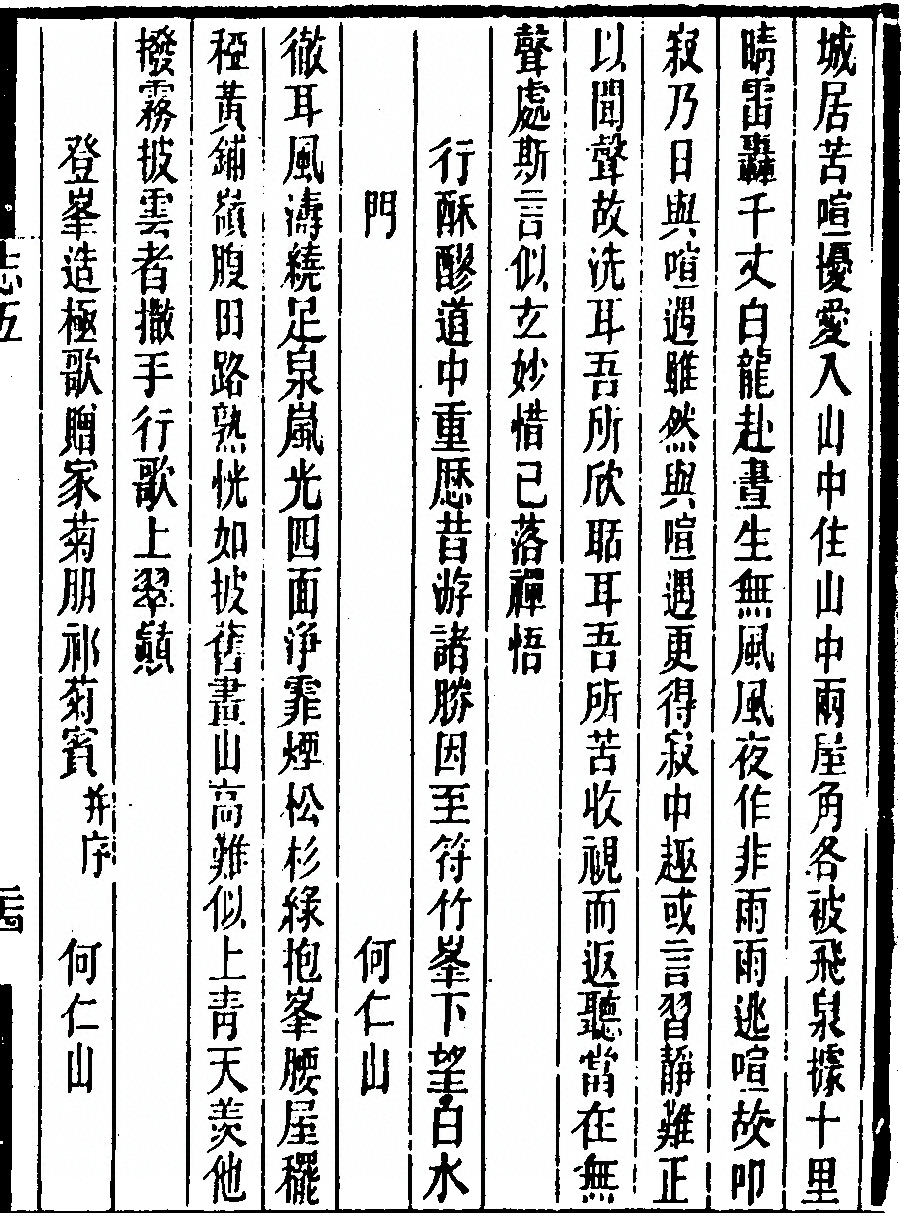 城居苦喧擾愛入山中住山中兩屋角各被飛泉據十里
晴雷轟千丈白龍赴晝生無風風夜作非雨雨逃喧故叩
寂乃日與喧遇雖然與喧遇更得寂中趣或言習靜難正
以聞聲故洗耳吾所欣聒耳吾所苦收視而返聽當在無
聲處斯言似玄妙惜已落禪悟
行酥醪道中重歷昔游諸勝因至符竹峯下望白水
門　何仁山
徹耳風濤繞足泉嵐光四面淨霏煙松杉綠抱峯腰屋䆉
稏黃鋪嶺腹田路熟恍如披舊畫山高難似上靑天羨他
撥霧披雲者撒手行歌上翠巔
登峯造極歌贈家菊朋祁菊賓并序　何仁山
志五